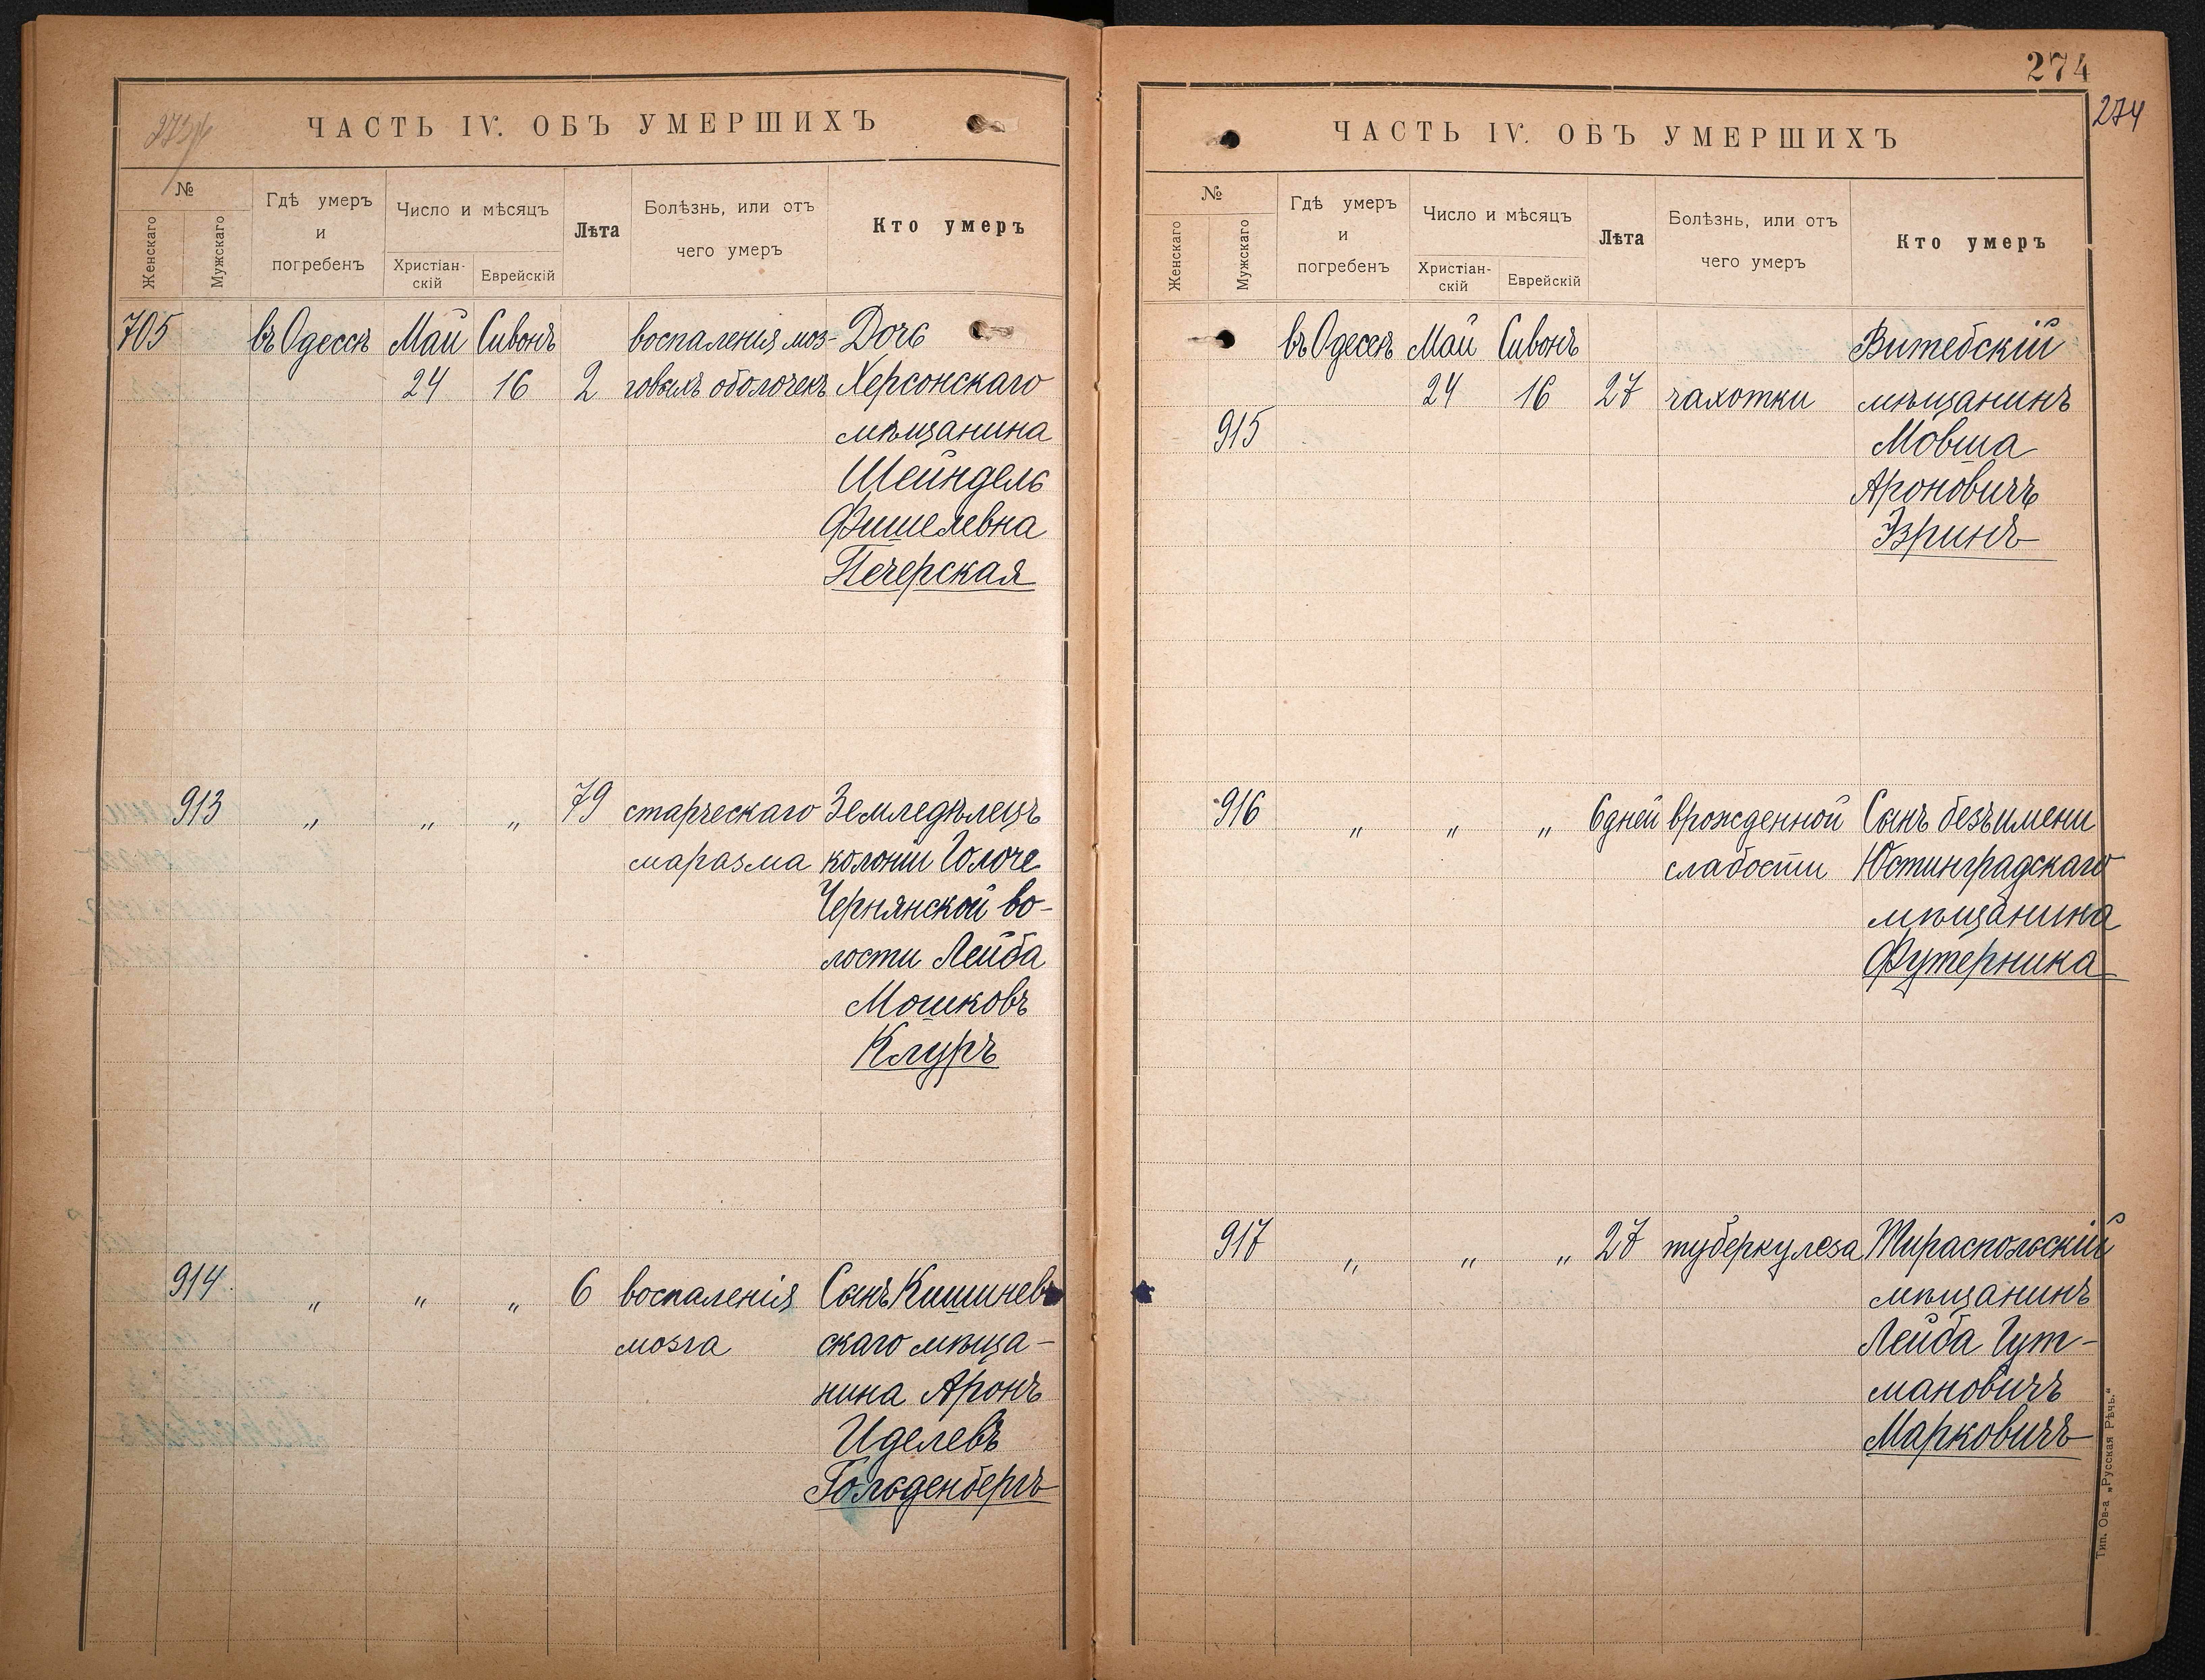 ЧАСТЬ IV. ОБЪ УМЕРШИХЪ
№
Женскаго
Мужскаго
Гдѣ умеръ
и
погребенъ
Число и мѣсяцъ
Христіан-
скій
Еврейскій
Лѣта
Болѣзнь, или отъ
чего умеръ
Кто умеръ
705 въ Одессѣ Май Сивонъ воспаленія моз- Дочь
24 16 2 говыхъ оболочекъ Херсонскаго
мѣщанина
Шейндель
Фишелевна
Печерская
913 „ „ „ 79 старческаго Земледѣлецъ
маразма колоніи Голоче
Чернянской во-
лости Лейба
Мошковъ
Клуръ
914 „ „ „ 6 воспаленія Сынъ Кишинев-
мозга скаго мѣща-
нина Аронъ
Иделевъ
Гольденбергъ
274
274
ЧАСТЬ IV. ОБЪ УМЕРШИХЪ
№
Женскаго
Мужскаго
Гдѣ умеръ
и
погребенъ
Число и мѣсяцъ
Христіан-
скій
Еврейскій
Лѣта
Болѣзнь, или отъ
чего умеръ
Кто умеръ
въ Одессѣ Май Сивонъ Витебскій
24 16 27 чахотки мѣщанинъ
915 Мовша
Ароновичъ
Эзринъ
916 „ „ „ 6 дней врожденной Сынъ безъ имени
слабости Юстинградскаго
мѣщанина
Футерника
917 „ „ „ 27 туберкулеза Тираспольскій
мѣщанинъ
Лейба Гут-
мановичъ
Марковичъ
Тип. Ов-а „Русская Рѣчь.“